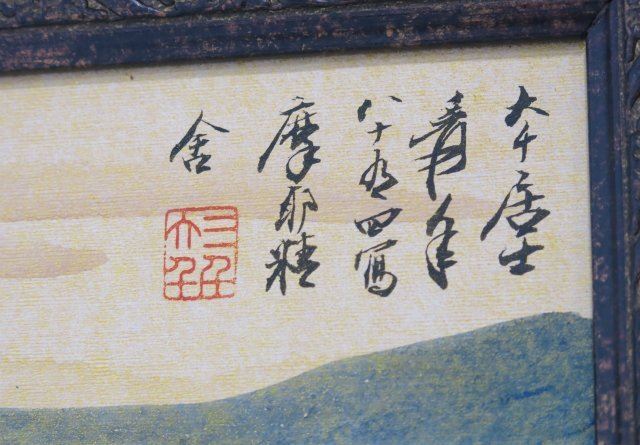 大千居士
爰年
八十有四寫
摩耶精
舍